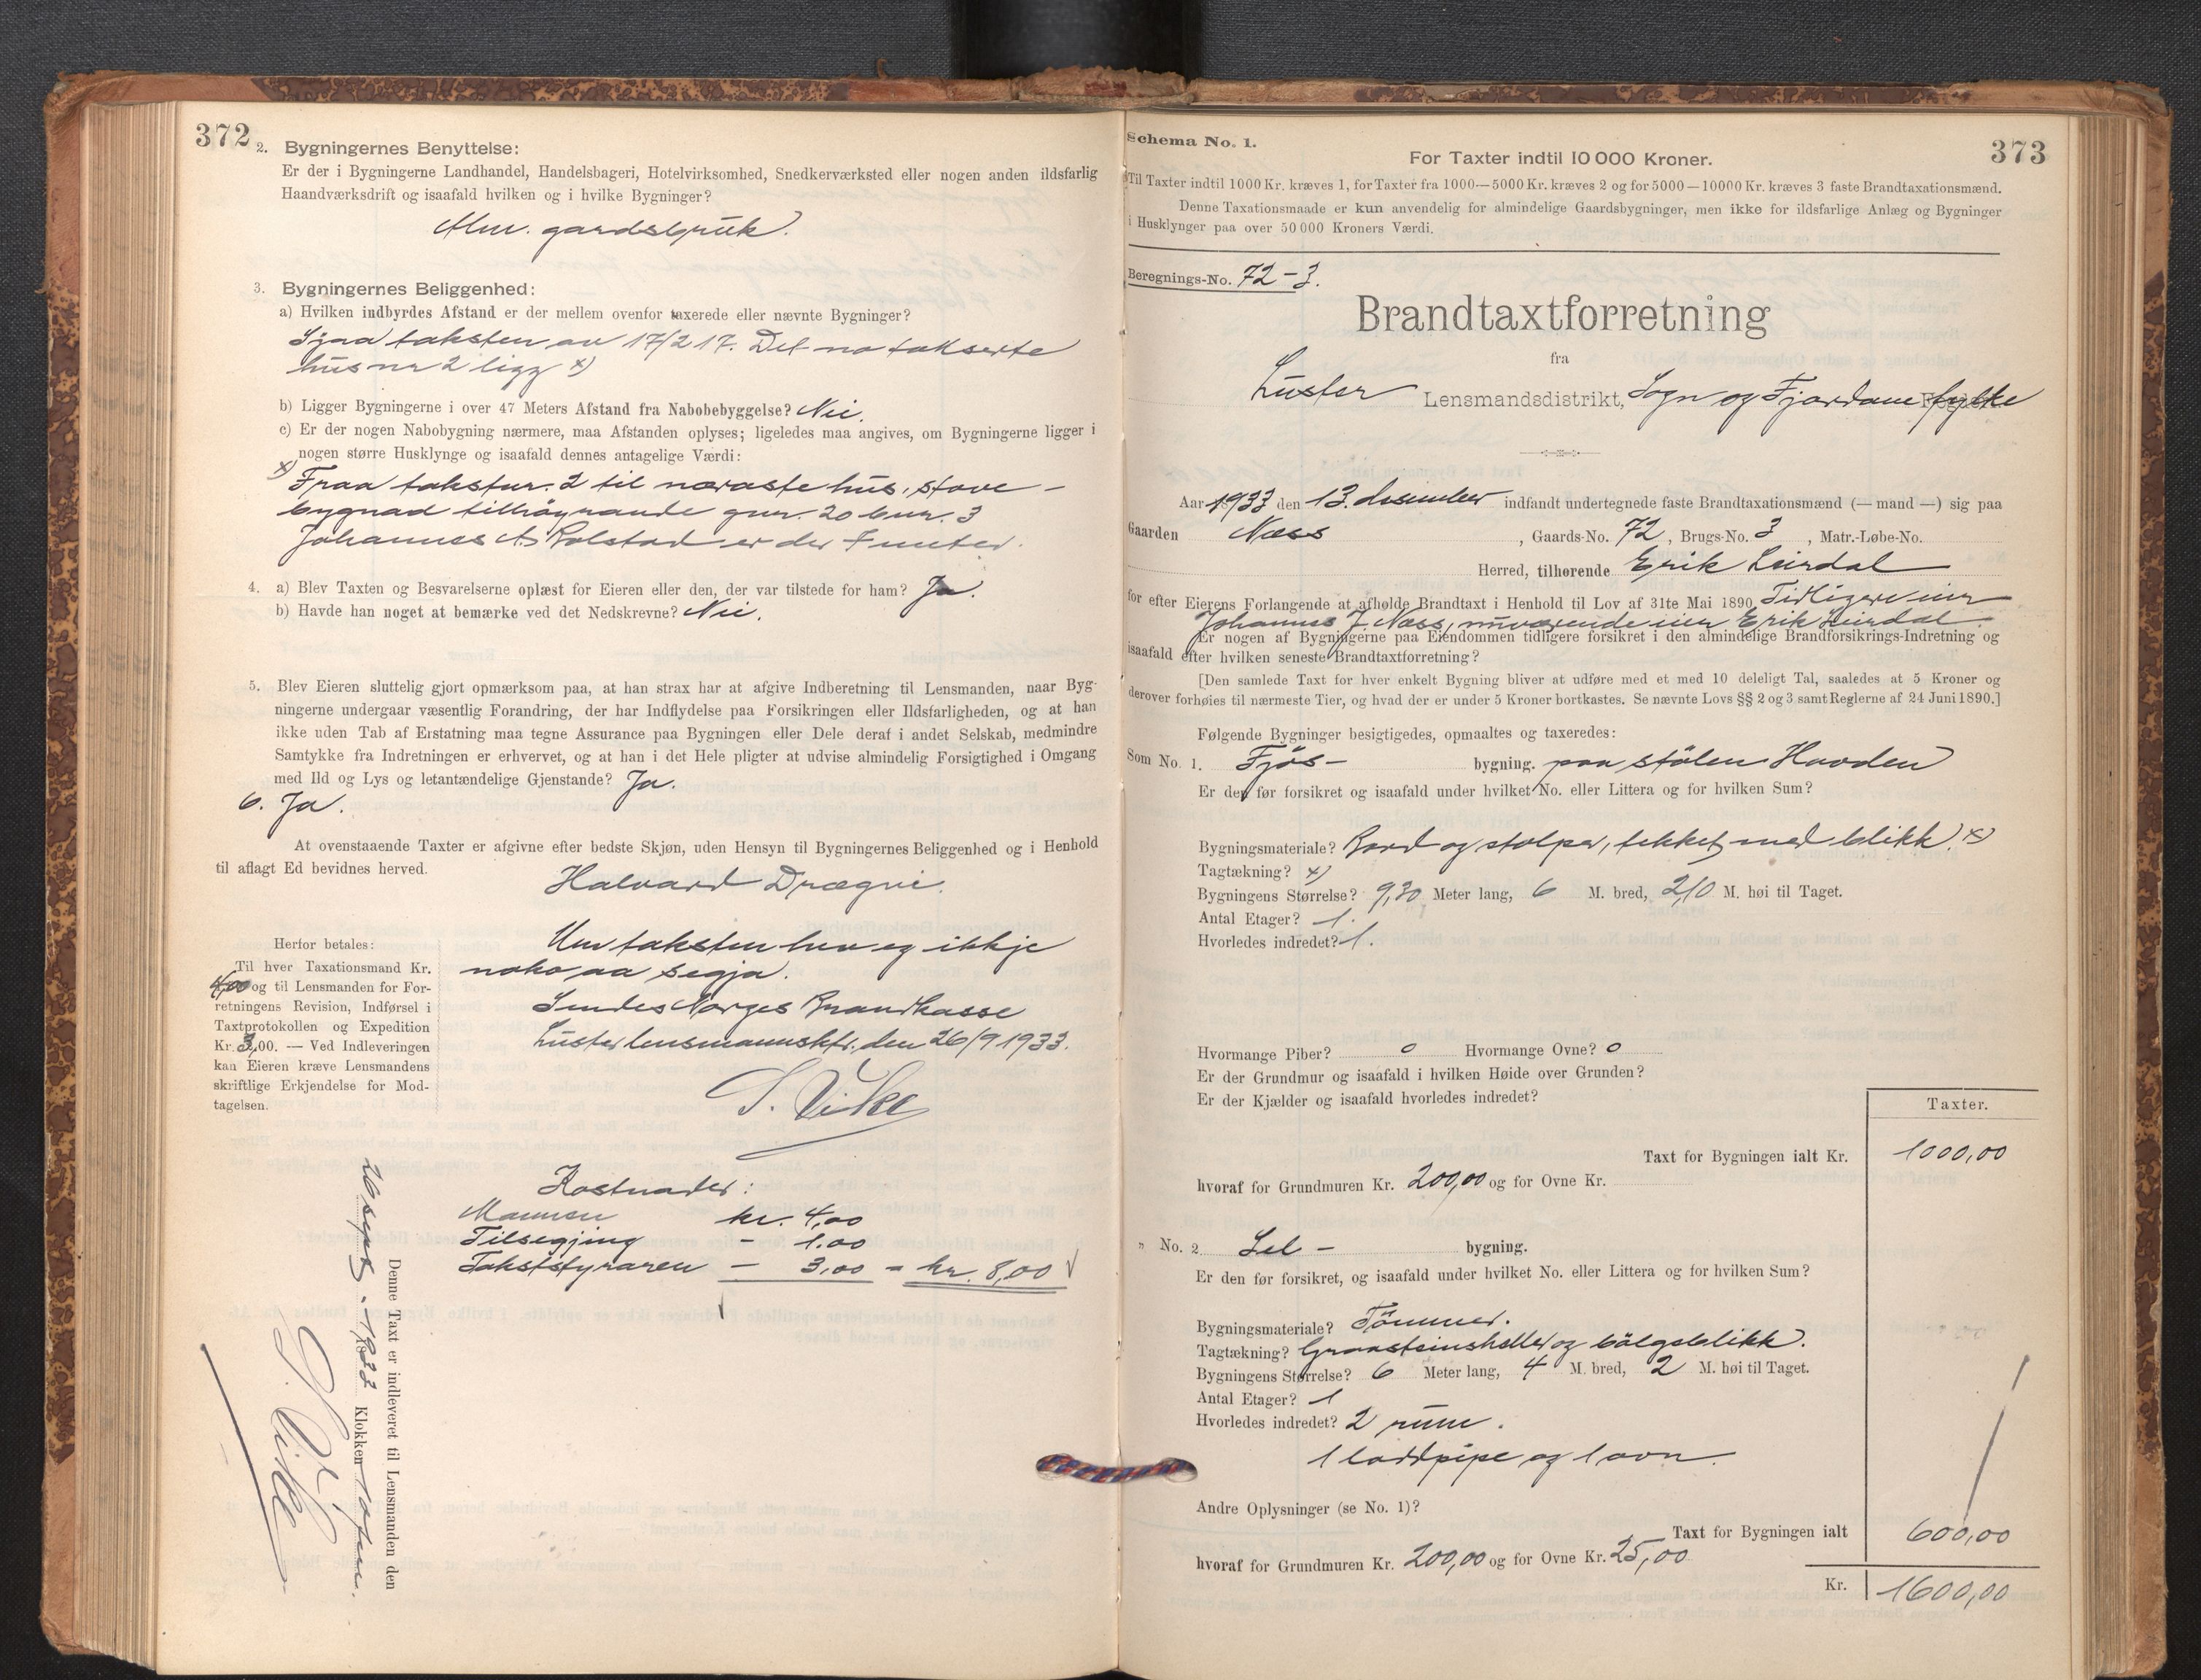 372
2. Bygningernes Benyttelse:
Er der i Bygningerne Landhandel, Handelsbageri, Hotelvirksomhed, Snedkerværksted eller nogen anden ildsfarlig
Haandværksdrift og isaafald hvilken og i hvilke Bygninger?
Alm. gardsbruk.
3. Bygningernes Beliggenhed:
a) Hvilken indbyrdes Afstand er der mellem ovenfor taxerede eller nævnte Bygninger?
taksten av 17/2 17. Det no takserte
hus nr 2 ligg x)
b) Ligger Bygningerne i over 47 Meters Afstand fra Nabobebyggelse? Nei.
c) Er der nogen Nabobygning nærmere, maa Afstanden oplyses; ligeledes maa angives, om Bygningerne ligger i
nogen større Husklynge og isaafald dennes antagelige Værdi:
x) Fraa takstnr. 2 til næraste hus, stove-
bygnad tilhøyrande gnr. 20 bnr. 3
Johannes A. Rolstad er der 7 meter.
4. a) Blev Taxten og Besvarelserne oplæst for Eieren eller den, der var tilstede for ham? Ja.
b) Havde han noget at bemærke ved det Nedskrevne? Nei.
5. Blev Eieren sluttelig gjort opmærksom paa, at han strax har at afgive Indberetning til Lensmanden, naar Byg-
ningerne undergaar væsentlig Forandring, der har Indflydelse paa Forsikringen eller Ildsfarligheden, og at han
ikke uden Tab af Erstatning maa tegne Assurance paa Bygningen eller Dele deraf i andet Selskab, medmindre
Samtykke fra Indretningen er erhvervet, og at han i det Hele pligter at udvise almindelig Forsigtighed i Omgang
med Ild og Lys og letantændelige Gjenstande? Ja.
6. Ja.
At ovenstaaende Taxter er afgivne efter bedste Skjøn, uden Hensyn til Bygningernes Beliggenhed og i Henhold
til aflagt Ed bevidnes herved.
Halvard Drægni.
Herfor betales:
Til hver Taxationsmand Kr.
4,00 og til Lensmanden for For-
retningens Revision, Indførsel i
Taxtprotokollen og Expedition
Kr. 3,00. — Ved Indleveringen
kan Eieren kræve Lensmandens
skriftlige Erkjendelse for Mod-
tagelsen.
Um taksten hev eg ikkje
noko aa segja.
Sendes Norges Brandkasse
Luster lensmannsktr. den 26/9 1933.
S. Vike
Kostnader:
Mannen kr. 4,00
Tilsegjing - 1.00
Takststyraren - 3,00 = kr. 8,00
Denne Taxt er indleveret til Lensmanden den
26 septb. 1933 Klokken
S. Vike
373
Schema No. 1.
For Taxter indtil 10 000 Kroner.
Til Taxter indtil 1000 Kr. kræves 1, for Taxter fra 1000—5000 Kr. kræves 2 og for 5000—10000 Kr. kræves 3 faste Brandtaxationsmænd.
Denne Taxationsmaade er kun anvendelig for almindelige Gaardsbygninger, men ikke for ildsfarlige Anlæg og Bygninger
i Husklynger paa over 50 000 Kroners Værdi.
Beregnings-No. 72-3.
Brandtaxtforretning
fra
Luster Lensmandsdistrikt, Sogn og Fjordane fylke
Aar 1933 den 13. desember indfandt undertegnede faste Brandtaxationsmænd (— mand —) sig paa
Gaarden Næss, Gaards-No. 72, Brugs-No. 3, Matr.-Løbe-No.
Herred, tilhørende Erik Leirdal
for efter Eierens Forlangende at afholde Brandtaxt i Henhold til Lov af 31te Mai 1890. Tidligere eier
Johannes J. Næss, nuværende eier Erik Leirdal.
Er nogen af Bygningerne paa Eiendommen tidligere forsikret i den almindelige Brandforsikrings-Indretning og
isaafald efter hvilken seneste Brandtaxtforretning?
[Den samlede Taxt for hver enkelt Bygning bliver at udføre med et med 10 deleligt Tal, saaledes at 5 Kroner og
derover forhøies til nærmeste Tier, og hvad der er under 5 Kroner bortkastes. Se nævnte Lovs §§ 2 og 3 samt Reglerne af 24 Juni 1890.]
Følgende Bygninger besigtigedes, opmaaltes og taxeredes:
Som No. 1. Fjös- bygning. paa stölen Havden
Er den før forsikret og isaafald under hvilket No. eller Littera og for hvilken Sum?
Bygningsmateriale? Bord og stolper, tekket med blikk. x)
Tagtækning? x)
Bygningens Størrelse? 9,30 Meter lang, 6 M. bred, 2,10 M. høi til Taget.
Antal Etager? 1.
Hvorledes indredet? 1.
Hvormange Piber? 0 Hvormange Ovne? 0
Er der Grundmur og isaafald i hvilken Høide over Grunden?
Er der Kjælder og isaafald hvorledes indredet?
Taxter.
Taxt for Bygningen ialt Kr. 1000,00
hvoraf for Grundmuren Kr. 200,00 og for Ovne Kr.
" No. 2 Sel- bygning.
Er den før forsikret, og isaafald under hvilket No. eller Littera og for hvilken Sum?
Bygningsmateriale? Tömmer.
Tagtækning? Graasteinsheller og bölgeblikk.
Bygningens Størrelse? 6 Meter lang, 4 M. bred, 2 M. høi til Taget.
Antal Etager? 1
Hvorledes indredet? 2 rum.
1 loddpipe og 1 ovn.
Andre Oplysninger (se No. 1)?
Taxt for Bygningen ialt 600,00
hvoraf for Grundmuren Kr. 200,00 og for Ovne Kr. 25,00
Kr. 1600,00